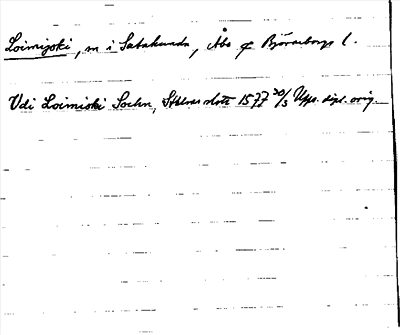 Loimijoki, m i Satakunda, Åbo o Björneborgs l.
Udi Loimioki Sochn, Sthlms slott 1577 30/3 Upps. dipl. orig.